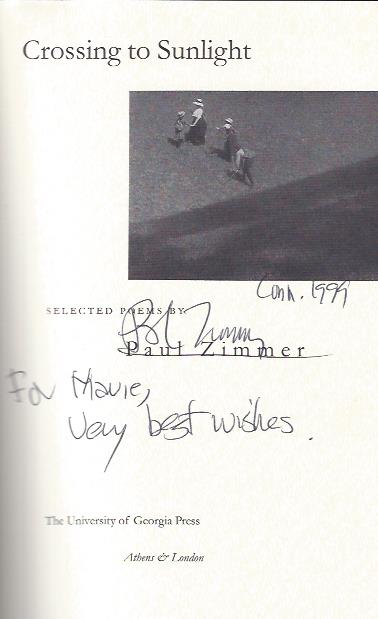 Crossing to Sunlight
Conn. 1999
SELECTED POEMS BY
Paul Zimmer
For Marie,
Very best wishes.
The University of Georgia Press
Athens & London